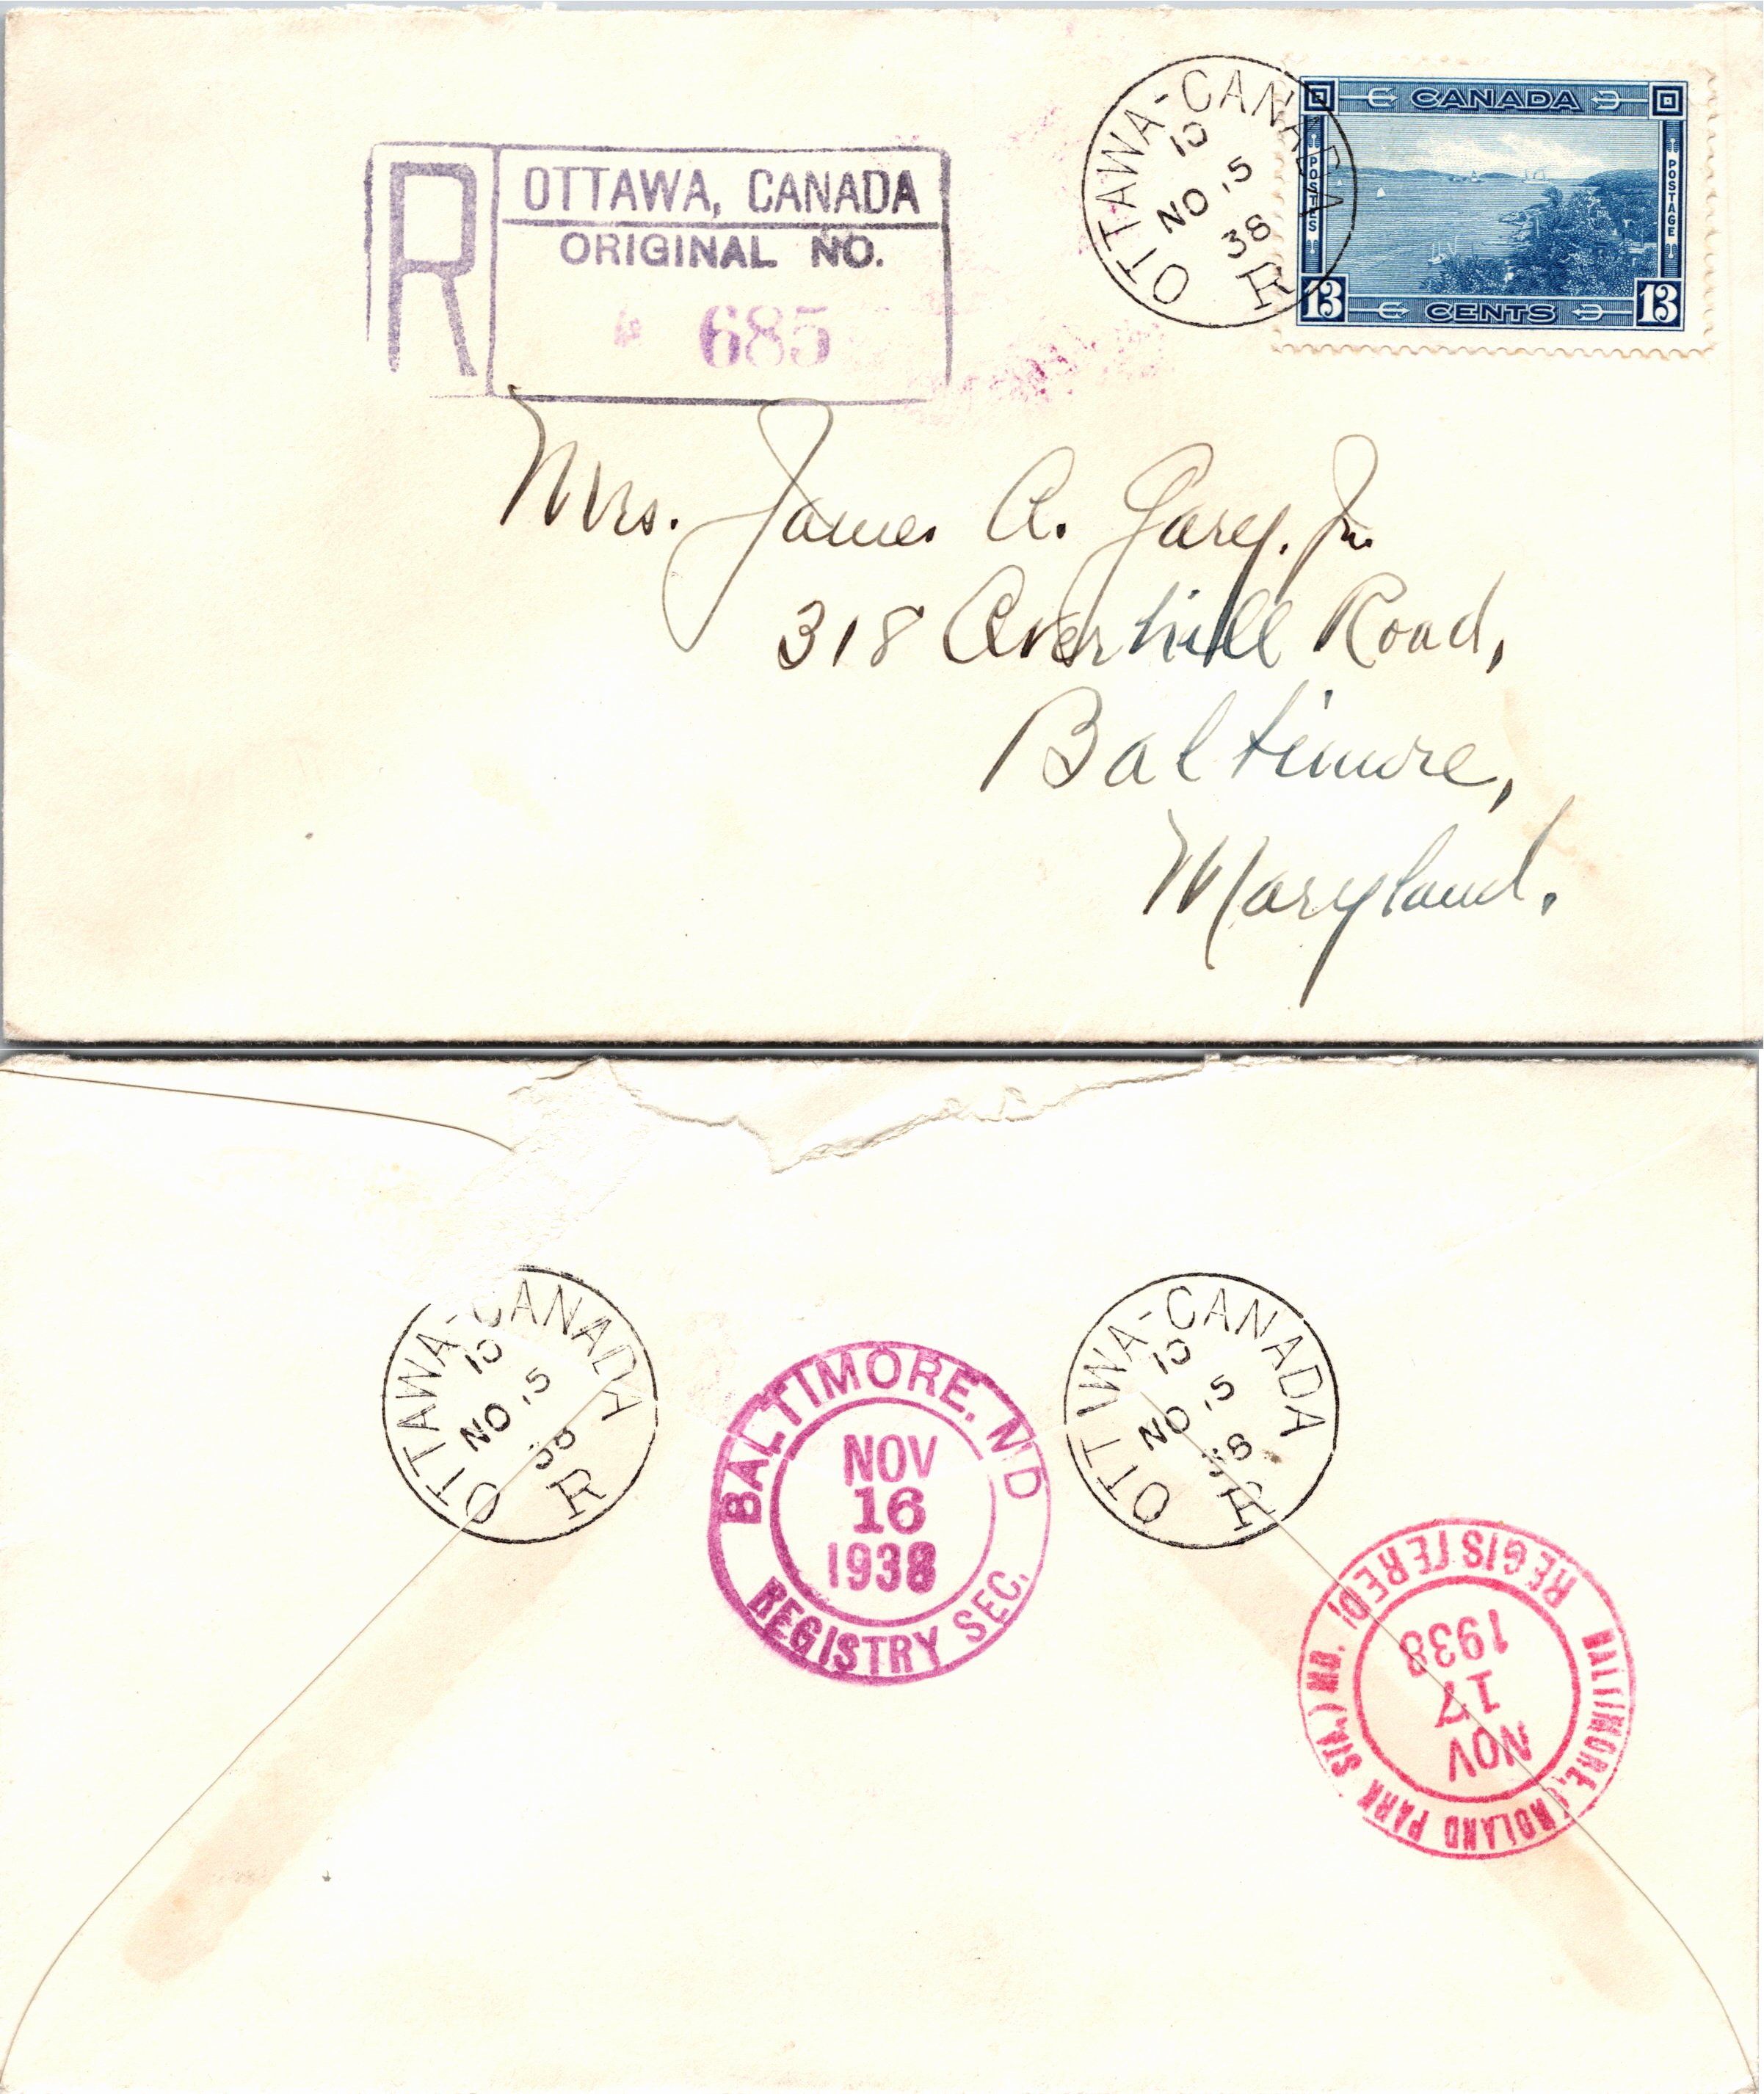 R
OTTAWA, CANADA
ORIGINAL NO.
685
OTTAWA-CANADA
10
NO 15
38
R
CANADA
POSTES
POSTAGE
13 CENTS 13
Mrs. James A. Gary, Jr.
318 Overhill Road,
Baltimore,
Maryland.
OTTAWA-CANADA
10
NO 15
38
R
BALTIMORE, MD
NOV
16
1938
REGISTRY SEC.
OTTAWA-CANADA
10
NO 15
38
R
BALTIMORE, (ROLAND PARK STA.) MD.
NOV
17
1938
REGISTERED